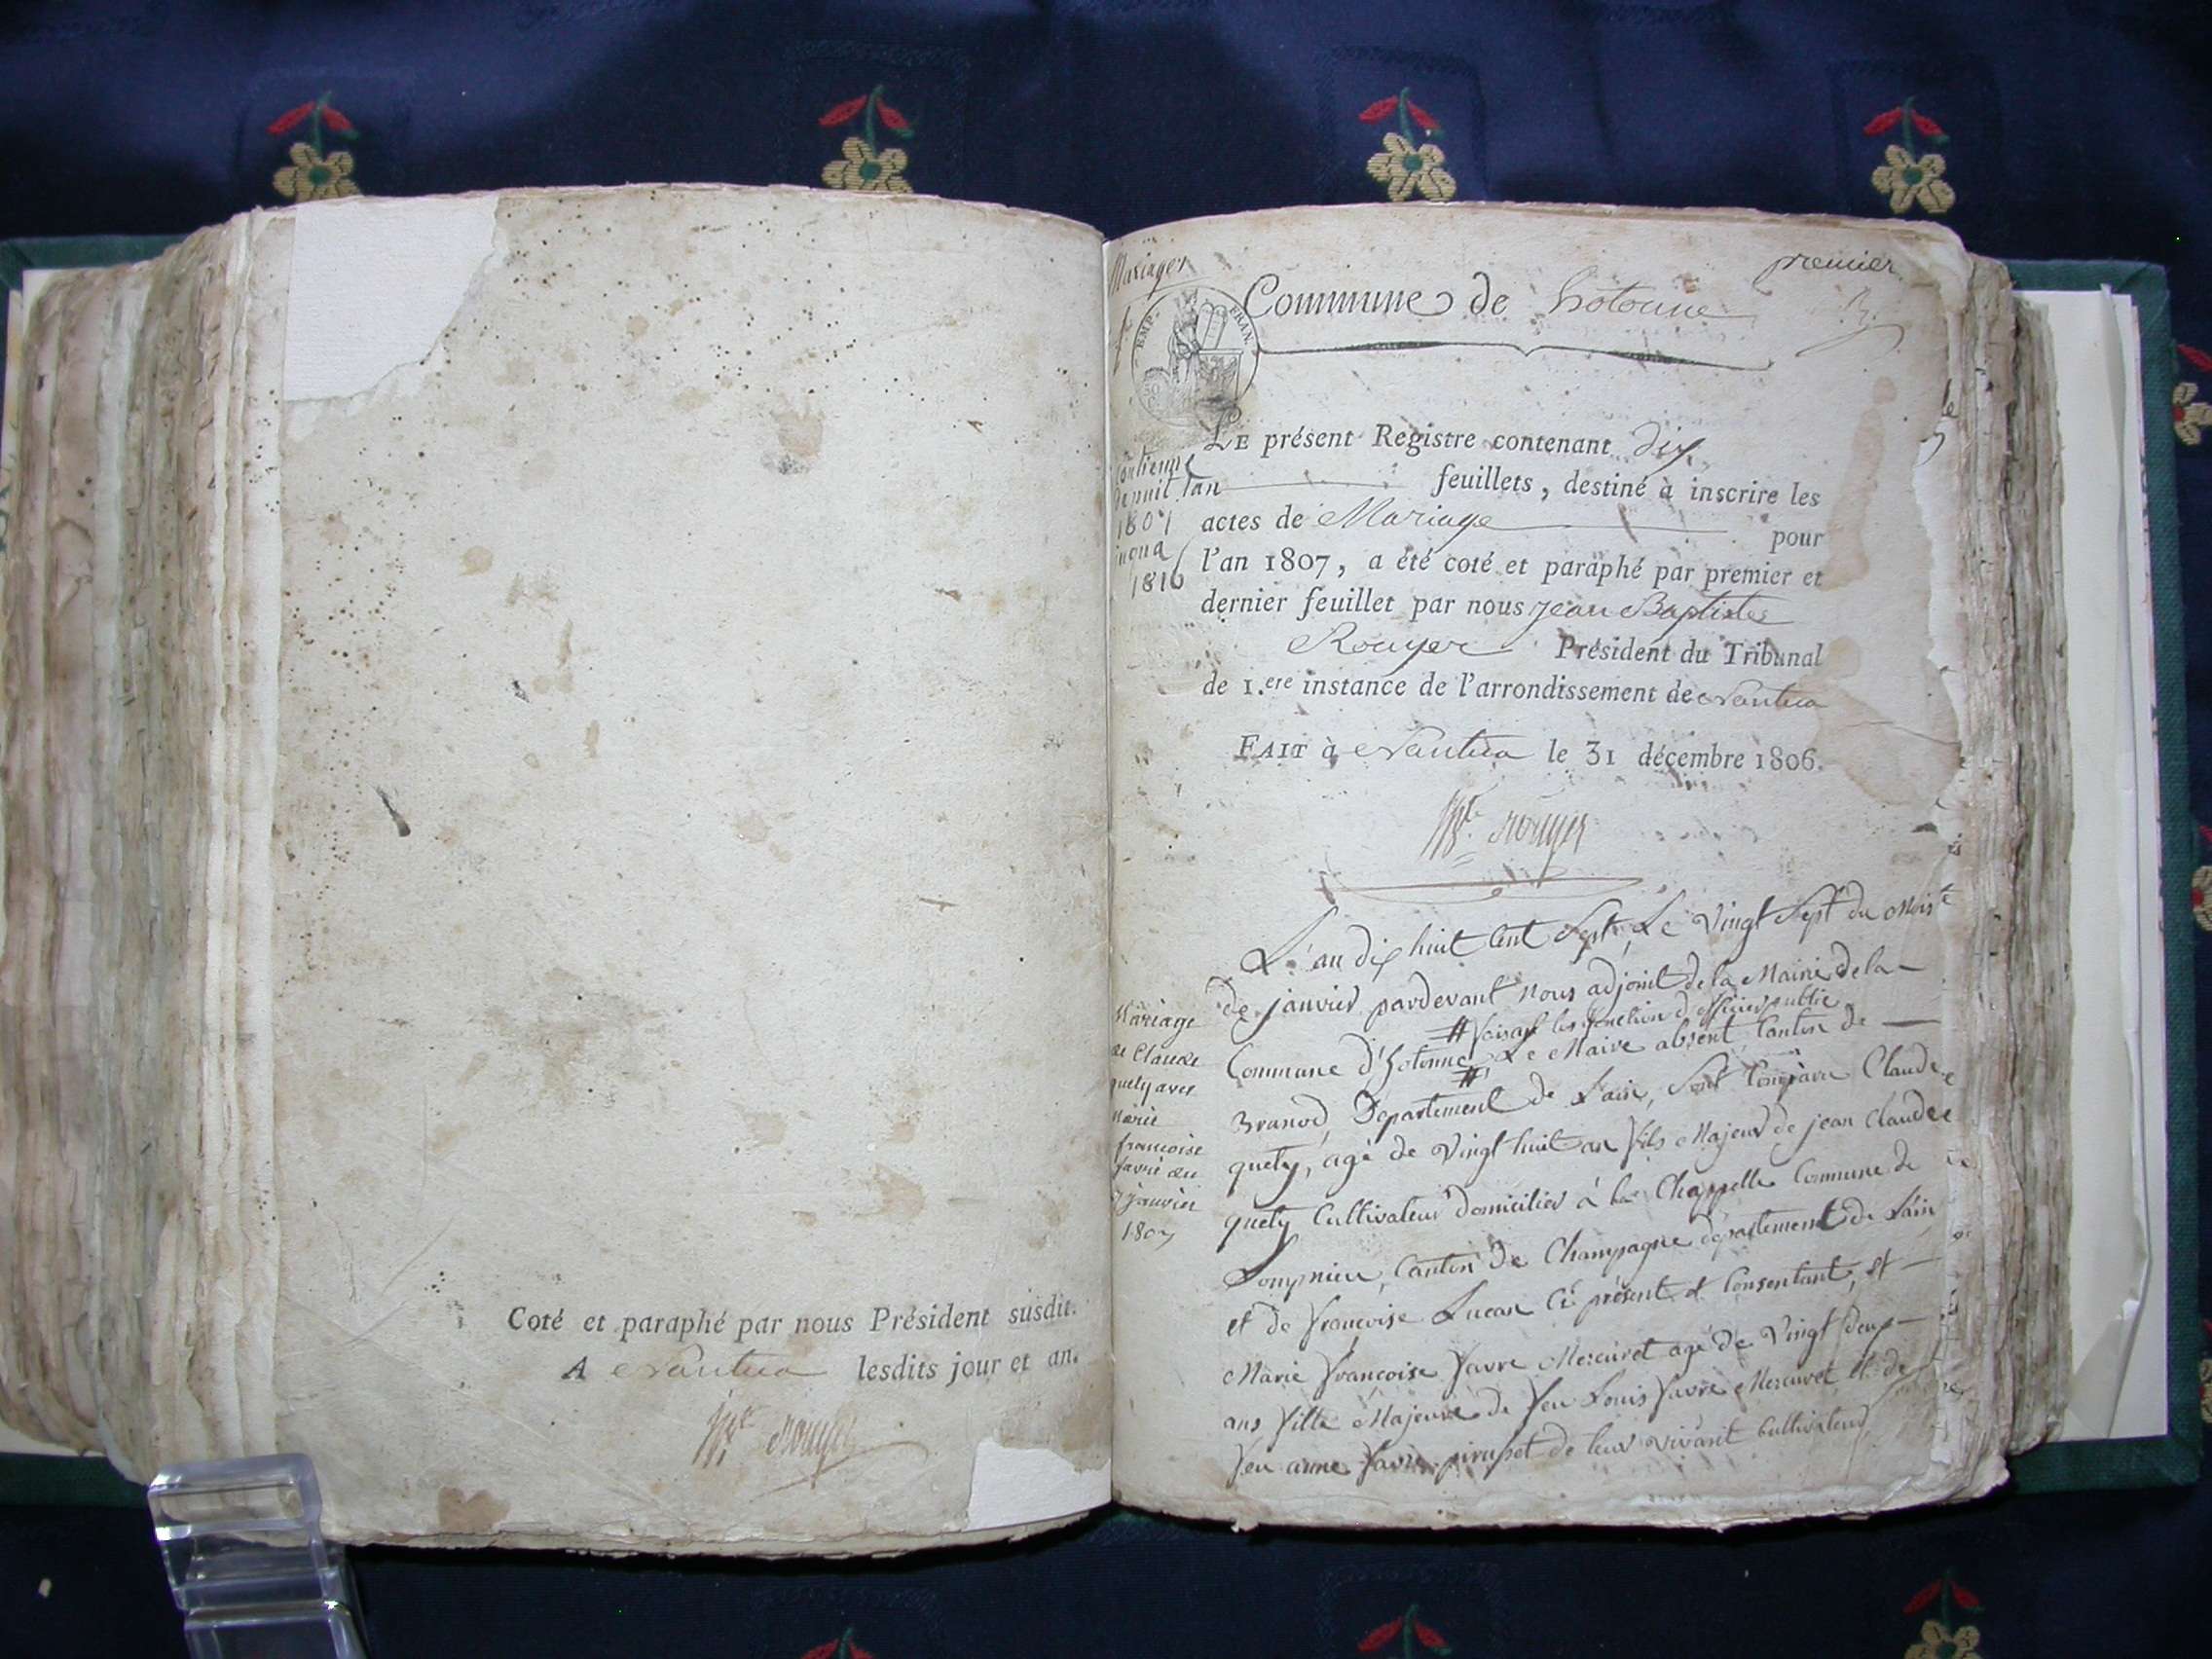 Coté et paraphé par nous Président susdit.
A Nantua lesdits jour et an.
Bte Rouyer
Mariages
premier
Commune de hotonne
EMP. FRAN.
LE présent Registre contenant dix
feuillets, destiné à inscrire les
actes de Mariage pour
l'an 1807, a été coté et paraphé par premier et
dernier feuillet par nous Jean Baptiste
Rouyer Président du Tribunal
de 1.ere instance de l'arrondissement de Nantua
FAIT à Nantua le 31 décembre 1806.
Bte Rouyer
contienne
depuit lan
1807
1816
L'an dix huit Cent Sept, Le Vingt Sept du Mois
de janvier pardevant nous adjoint de la Mairie de la
# faisant les fonction d'officier public
Commune d'hotonne # Le Maire absent, Canton de
Branod, Département de Lain, Sont Comparu Claude
quety, agé de Vingt huit an fils Majeur de jean Claude
quety Cultivateur domicilier à la Chappelle Commune de
Lompnieu, Canton de Champagne département de Lain
et de francoise Lucan Ci présent et Consentant, et
Marie francoise favre Mercuret agé de Vingt deux
ans fille Majeure de feu Louis favre Mercuret et de
feu anne favre de leur vivant Cultivateur
Mariage
de Claude
quety avec
Marie
francoise
favre du
janvier
1807